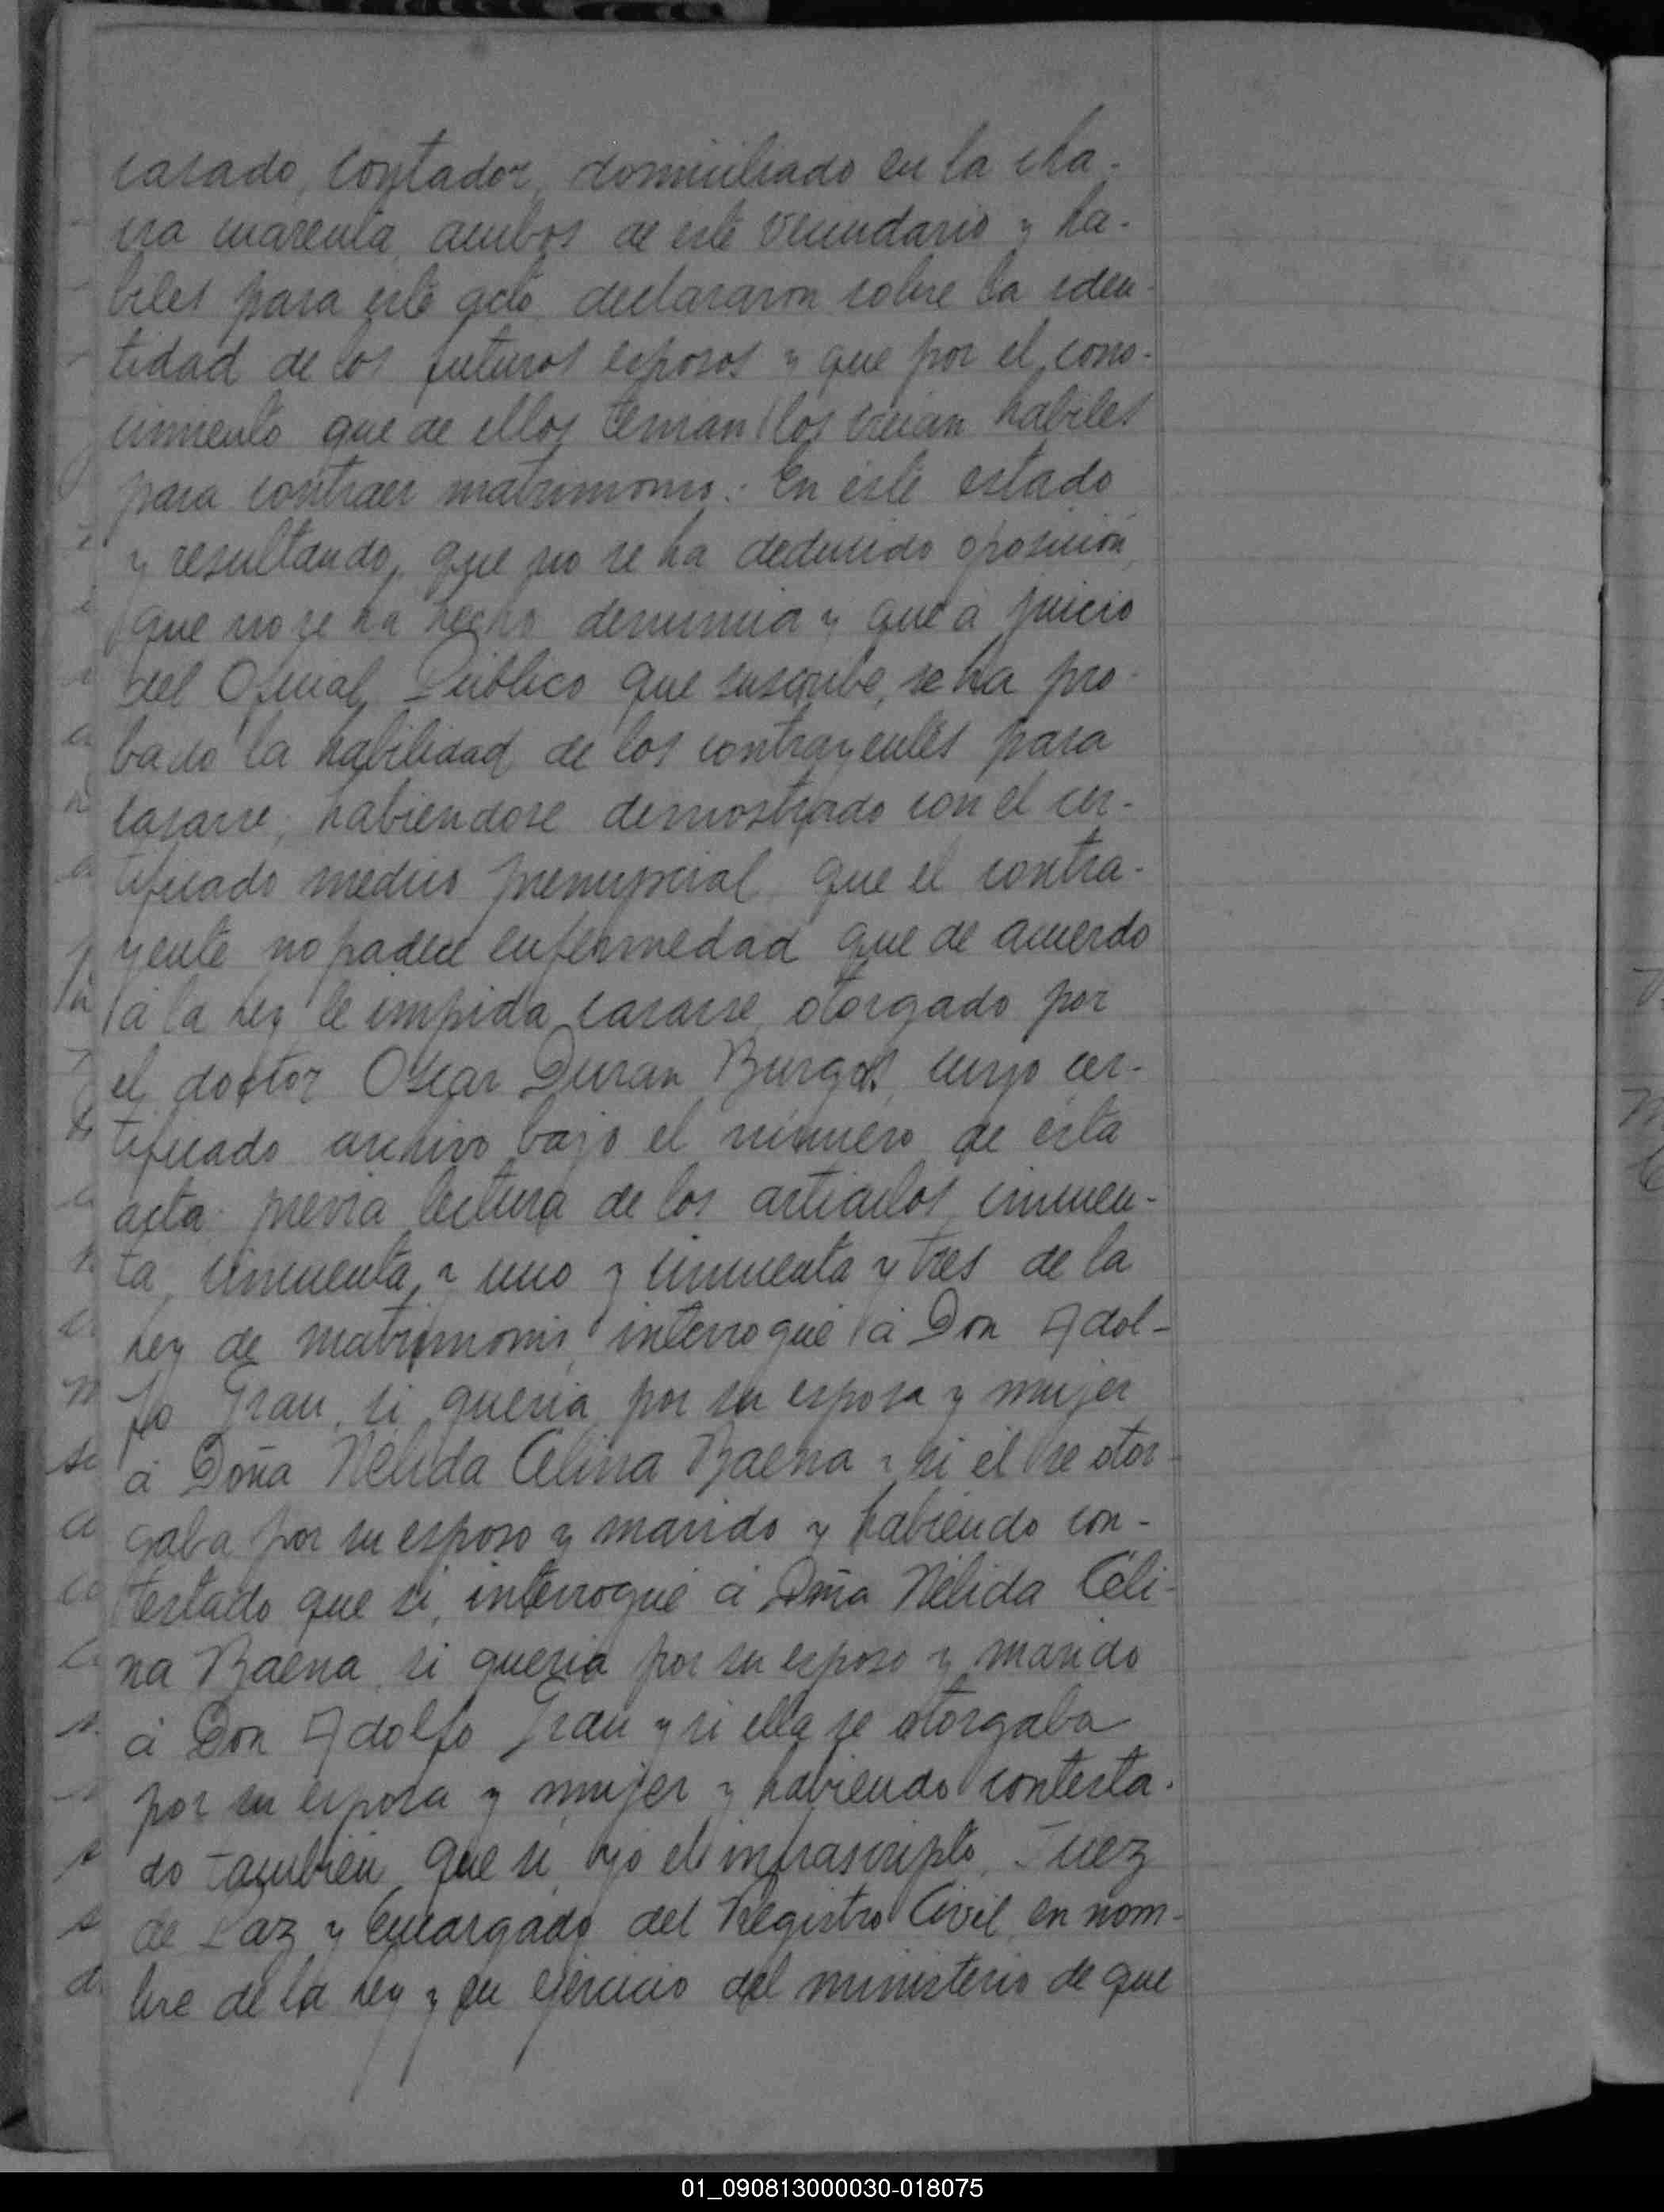 casado, contador, domiciliado en la cha-
cra cuarenta, ambos de este vecindario y ha-
biles para este acto declararon sobre la iden-
tidad de los futuros esposos y que por el cono-
cimiento que de ellos tenian los creian habiles
para contraer matrimonio.- En este estado
y resultando, que no se ha deducido oposición,
que no se ha hecho denuncia y que á juicio
del Oficial Público que suscribe, se ha pro-
bado la habilidad de los contrayentes para
casarse, habiendose demostrado con el cer-
tificado medico prenupcial que el contra-
yente no padece enfermedad que de acuerdo
á la ley le impida casarse, otorgado por
el doctor Oscar Duran Burgos, cuyo cer-
tificado archivo bajo el número de esta
acta previa lectura de los articulos cincuen-
ta, cincuenta y uno y cincuenta y tres de la
ley de matrimonio, interrogué á Don Adol-
fo Grau, si queria por su esposa y mujer
á Doña Nélida Celina Baena y si él se otor-
gaba por su esposo y marido y habiendo con-
testado que si, interrogué á Dña Nélida Celi-
na Baena, si queria por su esposo y marido
á Don Adolfo Grau y si ella se otorgaba
por su esposa y mujer y habiendo contesta-
do también que si, yo el infrascripto, Juez
de Paz y Encargado del Registro Civil, en nom-
bre de la ley y en ejercicio del ministerio de que
01_090813000030-018075